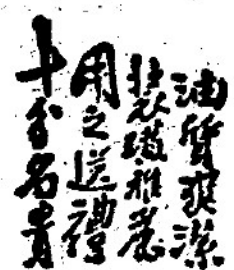 油質爽潔
裝璜雅麗
用之送禮
十分名貴